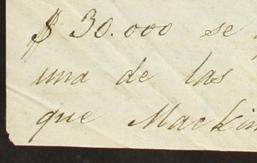 $ 30.000 se
una de las
que Mackin